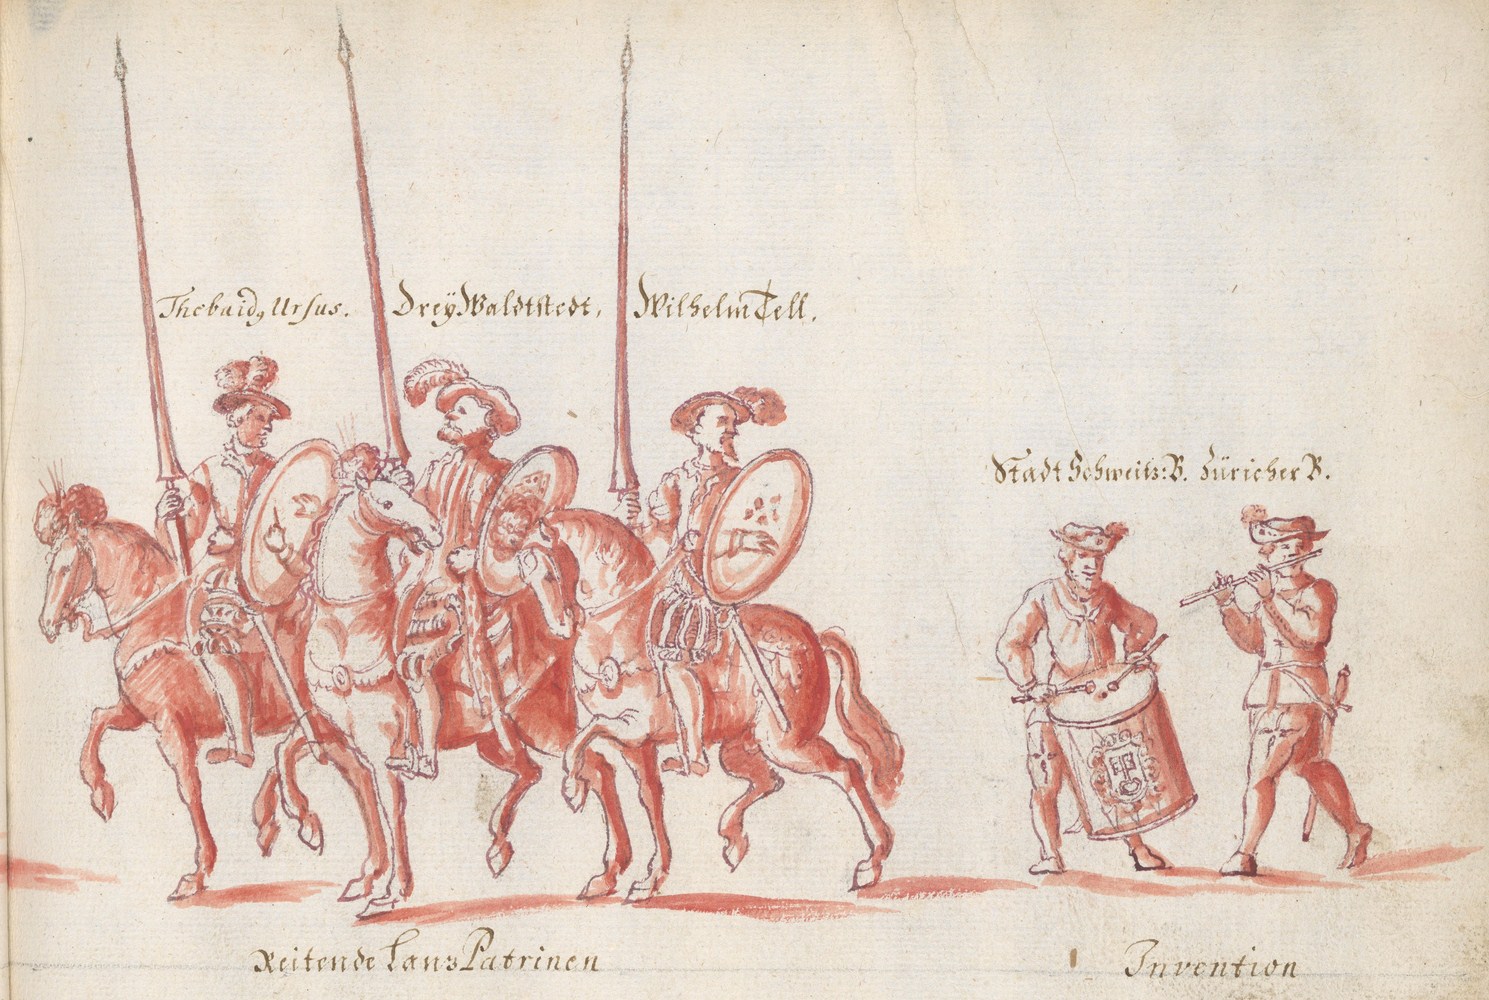 Thebaidꝰ Ursus.
Dreÿ Waldtstedt,
Wilhelm Tell.
Stadt Schweitz: B. Züricher B.
Reitende Lanz Patrinen
Invention